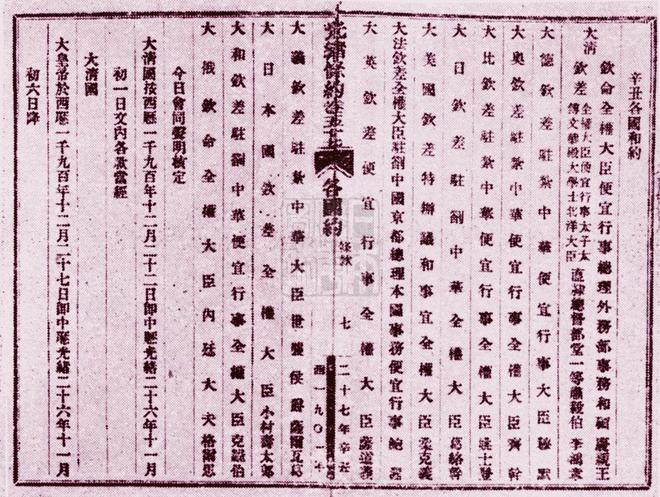 辛丑各國和約
欽命全權大臣便宜行事總理外務部事務和碩慶親王
大清
欽差
全權大臣便宜行事太子太
傅文華殿大學士北洋大臣
直隸總督部堂一等肅毅伯李鴻章
大德欽差駐紮中華便宜行事大臣穆默
大奧欽差駐紮中華便宜行事全權大臣齊幹
大比欽差駐紮中華便宜行事全權大臣姚士登
大日欽差駐劄中華全權大臣葛絡幹
大美國欽差特辦議和事宜全權大臣柔克義
大法欽差全權大臣駐劄中國京都總理本國事務便宜行事鮑
大英欽差便宜行事全權大臣薩道義
光緒條約卷五十
各國約
條款
七
二十七年辛丑
西一九〇一年
大義欽差駐紮中華大臣世襲侯爵薩爾瓦葛
大日本國欽差全權大臣小村壽太郎
大和欽差駐劄中華便宜行事全權大臣克羅伯
大俄欽命全權大臣內廷大夫格爾思
今日會同聲明核定
大清國按西歷一千九百年十二月二十二日卽中歷光緒二十六年十一月
初一日文內各款當經
大清國
大皇帝於西歷一千九百年十二月二十七日卽中歷光緒二十六年十一月
初六日降